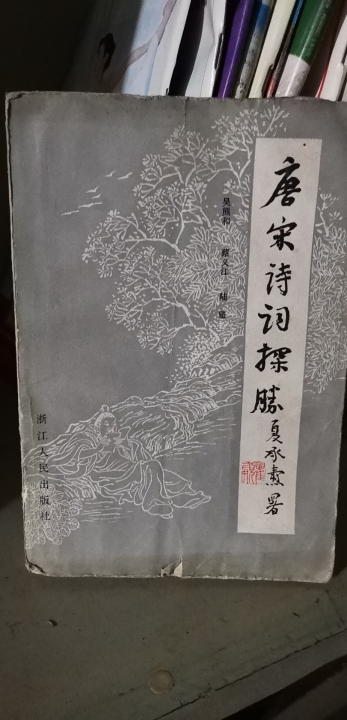 唐宋诗词探胜
夏承焘署
吴熊和 蔡义江 陆坚
浙江人民出版社